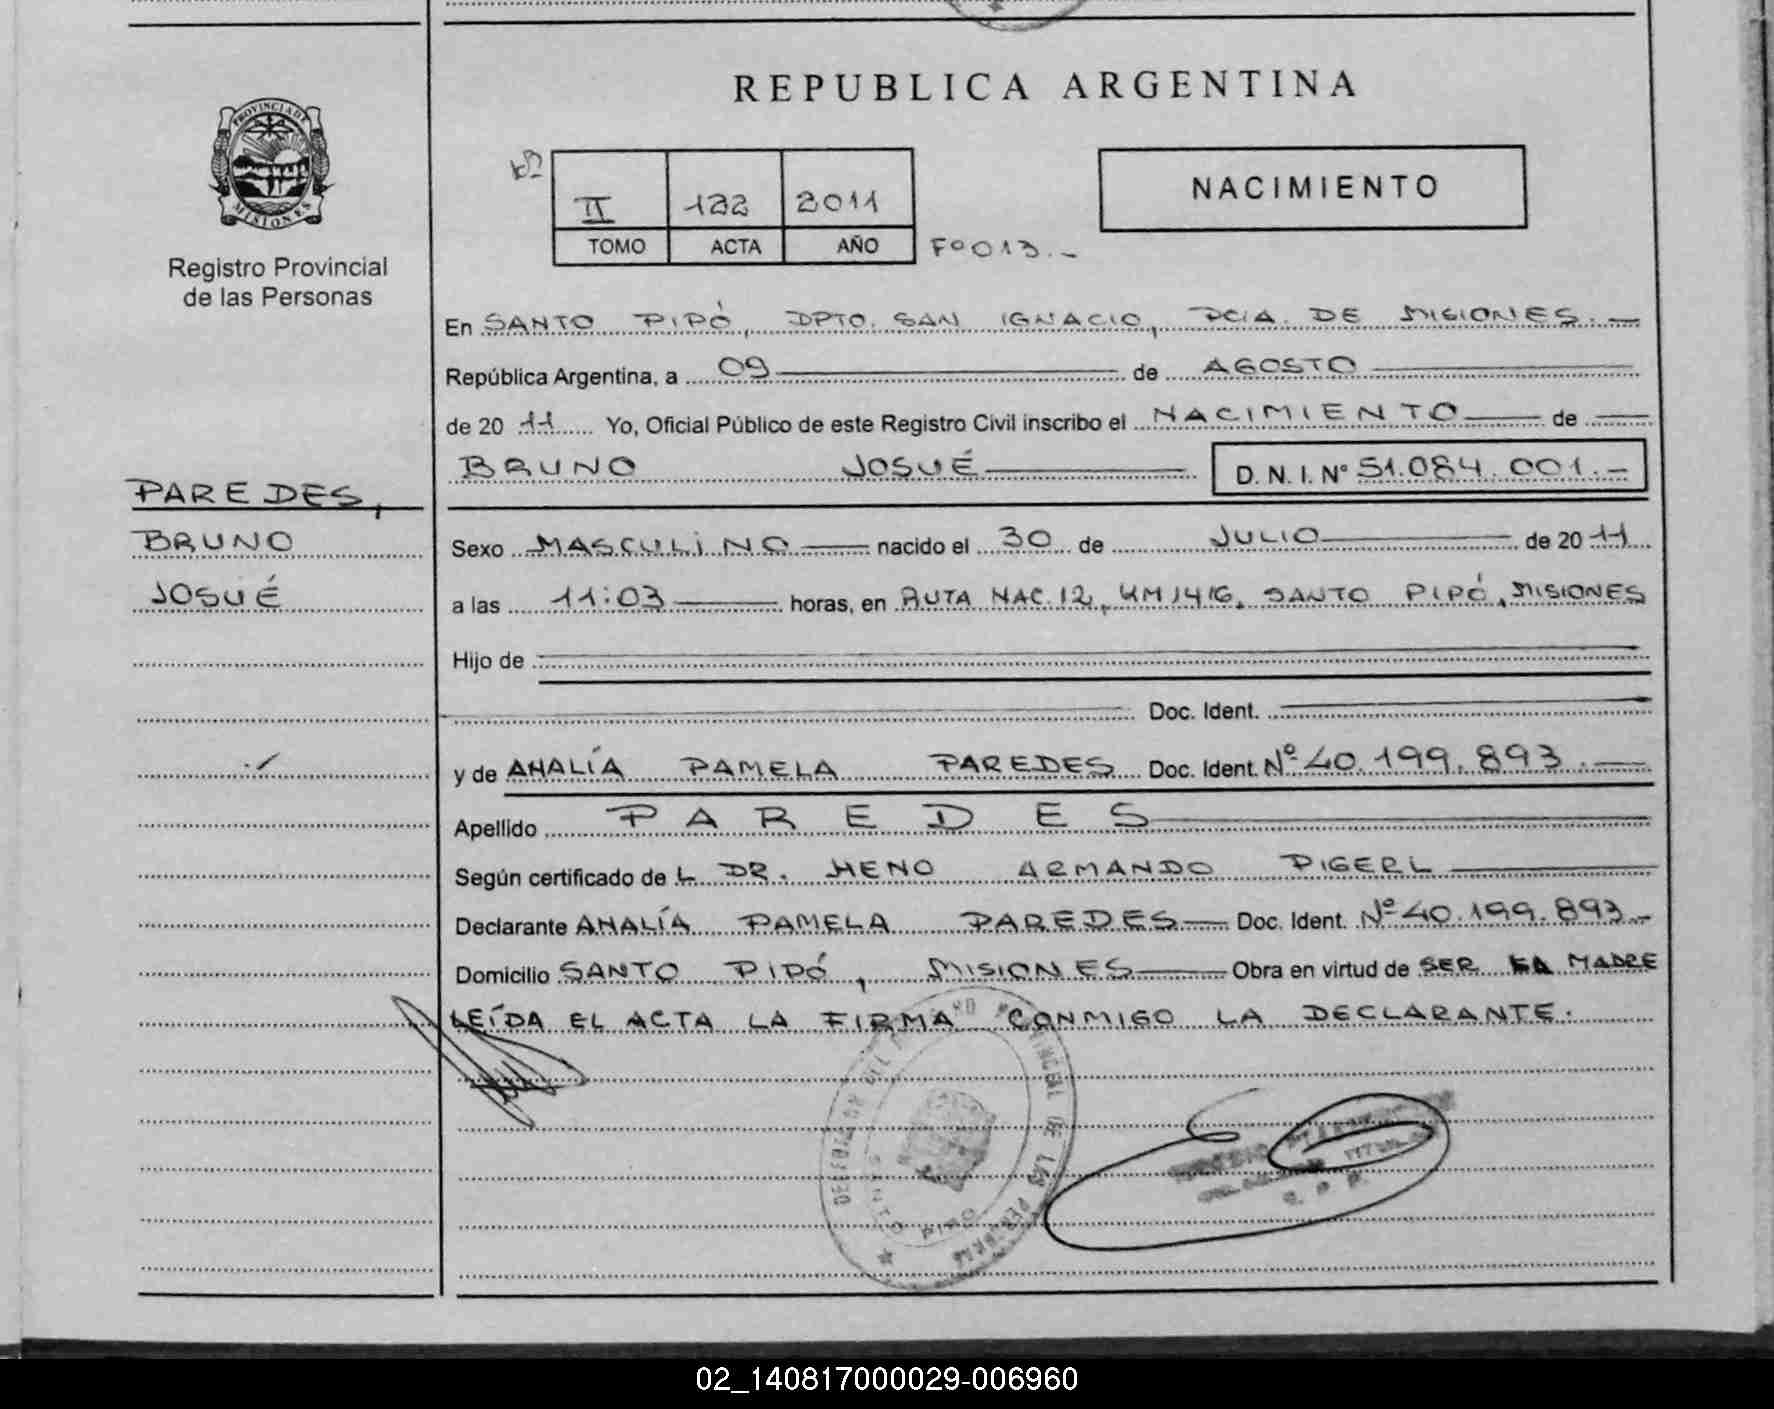 REPUBLICA ARGENTINA
PROVINCIA DE
MISIONES
Registro Provincial
de las Personas
II 122 2011
TOMO ACTA AÑO
Fº 013.-
NACIMIENTO
En SANTO PIPÓ, DPTO. SAN IGNACIO, PCIA. DE MISIONES.-
República Argentina, a 09 de AGOSTO
de 2011 Yo, Oficial Público de este Registro Civil inscribo el NACIMIENTO de
BRUNO JOSUÉ D. N. I. Nº 51.084.001.-
PAREDES,
BRUNO
JOSUÉ
Sexo MASCULINO nacido el 30 de JULIO de 2011
a las 11:03 horas, en RUTA NAC. 12, KM 1416, SANTO PIPÓ, MISIONES
Hijo de
Doc. Ident.
y de ANALÍA PAMELA PAREDES Doc. Ident. Nº 40.199.893.-
Apellido PAREDES
Según certificado de L DR. HENO ARMANDO PIGERL
Declarante ANALÍA PAMELA PAREDES Doc. Ident. Nº 40.199.893.-
Domicilio SANTO PIPÓ, MISIONES Obra en virtud de SER LA MADRE
LEÍDA EL ACTA LA FIRMA CONMIGO LA DECLARANTE.
DE LAS PERSONAS
PIPO
02_140817000029-006960